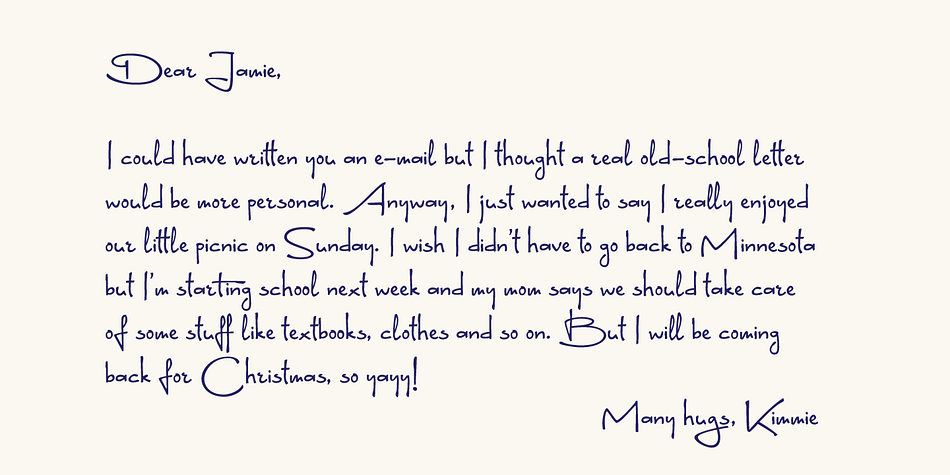 Dear Jamie,
I could have written you an e-mail but I thought a real old-school letter
would be more personal. Anyway, I just wanted to say I really enjoyed
our little picnic on Sunday. I wish I didn't have to go back to Minnesota
but I'm starting school next week and my mom says we should take care
of some stuff like textbooks, clothes and so on. But I will be coming
back for Christmas, so yayy!
Many hugs, Kimmie